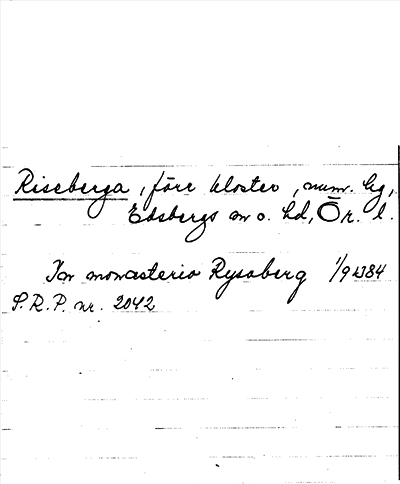 Riseberga, förr kloster, numr. lg,
Edsbergs sn o. hd, Ör. l.
In monasterio Rysaberg 1/9 1384
S.R.P. nr. 2042